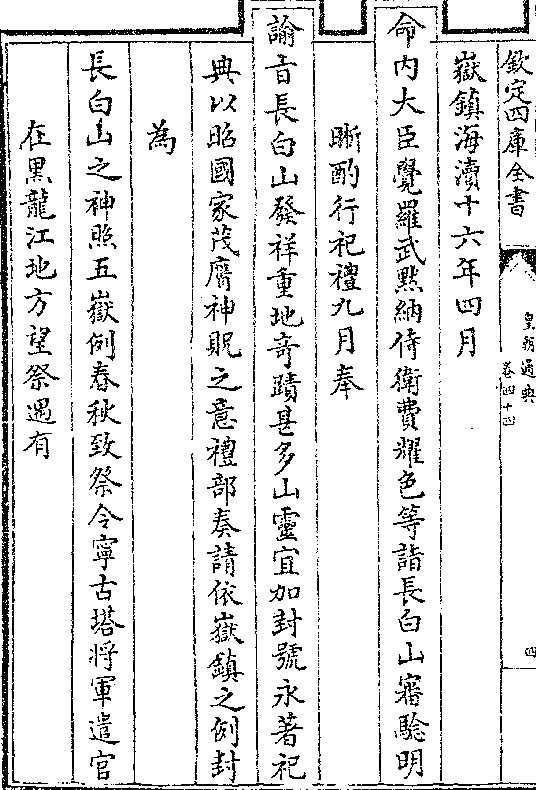 欽定四庫全書
皇朝通典
卷四十四
四
嶽鎮海瀆十六年四月
命內大臣覺羅武黙納侍衛費耀色等詣長白山審驗明
晰酌行祀禮九月奉
諭旨長白山發祥重地奇蹟甚多山靈宜加封號永著祀
典以昭國家茂膺神貺之意禮部奏請依嶽鎮之例封
為
長白山之神照五嶽例春秋致祭令寧古塔將軍遣官
在黑龍江地方望祭遇有